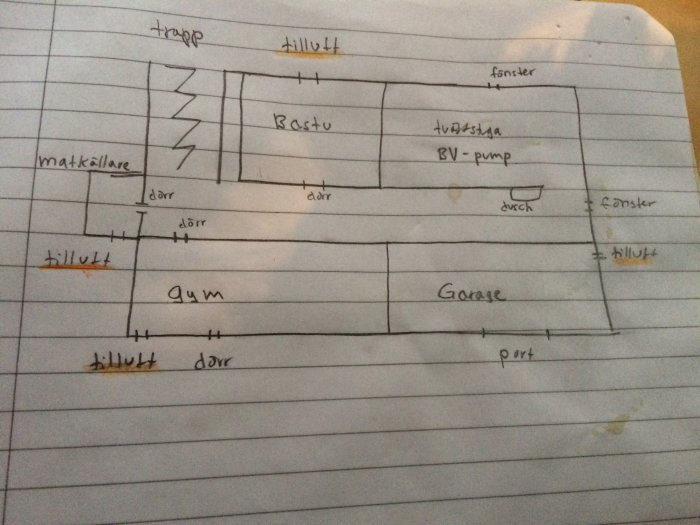 trapp
tilluft
fönster
Bastu
tvättstuga
BV-pump
matkällare
dörr
dörr
dusch
fönster
dörr
tilluft
tilluft
gym
Garage
tilluft
dörr
port